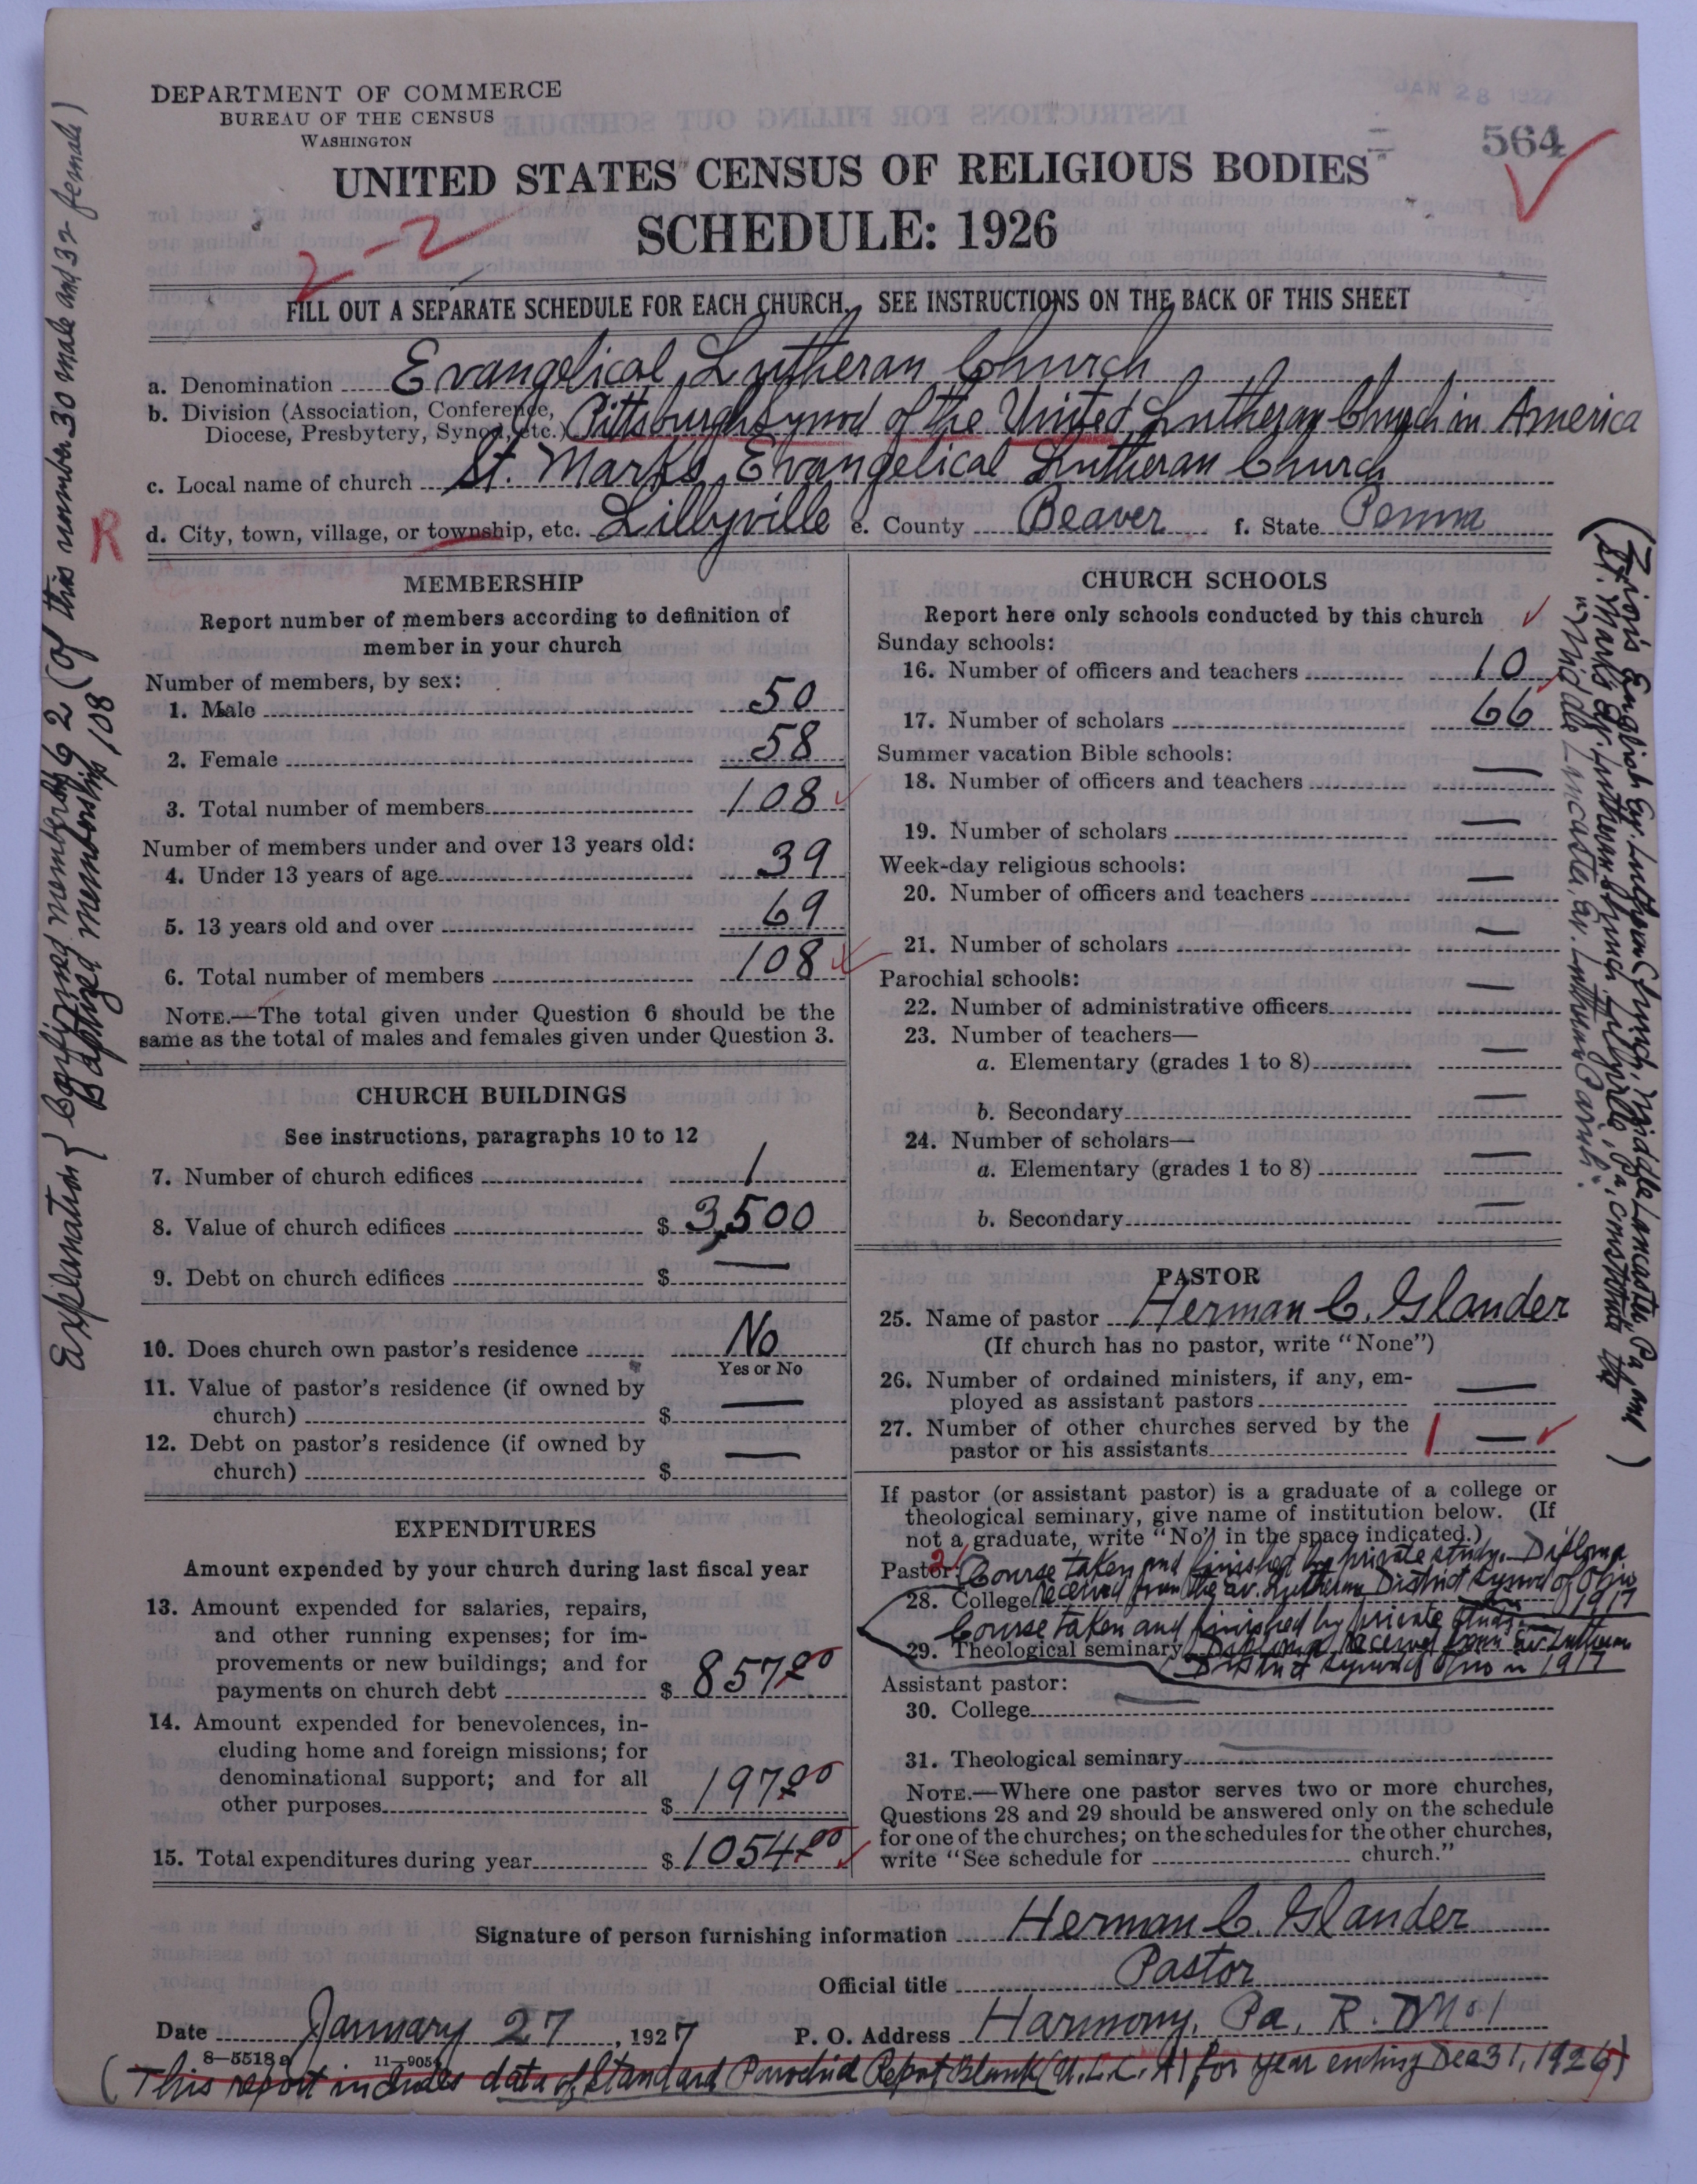 JAN 28 1927
564
DEPARTMENT OF COMMERCE
BUREAU OF THE CENSUS
WASHINGTON
UNITED STATES CENSUS OF RELIGIOUS BODIES
SCHEDULE: 1926
2-2
FILL OUT A SEPARATE SCHEDULE FOR EACH CHURCH. SEE INSTRUCTIONS ON THE BACK OF THIS SHEET
a. Denomination Evangelical Lutheran Church
b. Division (Association, Conference, Diocese, Presbytery, Synod, etc.) Pittsburgh Synod of the United Lutheran Church in America
c. Local name of church St. Marks Evangelical Lutheran Church
R
d. City, town, village, or township, etc. Lillyville e. County Beaver f. State Penna
MEMBERSHIP
Report number of members according to definition of
member in your church
Number of members, by sex:
1. Male 50
2. Female 58
3. Total number of members 108
Number of members under and over 13 years old:
4. Under 13 years of age 39
5. 13 years old and over 69
6. Total number of members 108
NOTE.—The total given under Question 6 should be the
same as the total of males and females given under Question 3.
CHURCH BUILDINGS
See instructions, paragraphs 10 to 12
7. Number of church edifices 1
8. Value of church edifices $ 3,500
9. Debt on church edifices $ —
10. Does church own pastor's residence No
Yes or No
11. Value of pastor's residence (if owned by
church) $ —
12. Debt on pastor's residence (if owned by
church) $ —
EXPENDITURES
Amount expended by your church during last fiscal year
13. Amount expended for salaries, repairs,
and other running expenses; for im-
provements or new buildings; and for
payments on church debt $ 857.00
14. Amount expended for benevolences, in-
cluding home and foreign missions; for
denominational support; and for all
other purposes $ 197.00
15. Total expenditures during year $ 1054.00
CHURCH SCHOOLS
Report here only schools conducted by this church
Sunday schools:
16. Number of officers and teachers 10
17. Number of scholars 66
Summer vacation Bible schools:
18. Number of officers and teachers —
19. Number of scholars —
Week-day religious schools:
20. Number of officers and teachers —
21. Number of scholars —
Parochial schools:
22. Number of administrative officers —
23. Number of teachers—
a. Elementary (grades 1 to 8) —
b. Secondary —
24. Number of scholars—
a. Elementary (grades 1 to 8) —
b. Secondary —
PASTOR
25. Name of pastor Herman C. Islander
(If church has no pastor, write "None")
26. Number of ordained ministers, if any, em-
ployed as assistant pastors —
27. Number of other churches served by the
pastor or his assistants 1 —
If pastor (or assistant pastor) is a graduate of a college or
theological seminary, give name of institution below. (If
not a graduate, write "No" in the space indicated.)
Pastor: Course taken and finished by private study. Diploma
28. College received from the Ev. Lutheran District Synod of Ohio 1917
Course taken and finished by private study.
29. Theological seminary Diploma received from Ev. Lutheran
District Synod of Ohio in 1917
Assistant pastor:
30. College —
31. Theological seminary —
NOTE.—Where one pastor serves two or more churches,
Questions 28 and 29 should be answered only on the schedule
for one of the churches; on the schedules for the other churches,
write "See schedule for church."
Signature of person furnishing information Herman C. Islander
Official title Pastor
Date January 27, 1927 P. O. Address Harmony, Pa. R. D. No 1
8—5518a 11—905
(This report includes data of Standard Parochial Report Blank (U.L.C.A) for year ending Dec 31, 1926)
Explanation { Confirmed membership 62 (of this number 30 male and 32 female)
Baptized membership 108
(Zion's English Ev. Lutheran Church, Middle Lancaster, Pa, and
St. Marks Ev. Lutheran Church, Lillyville, Pa, constitute the
"Middle Lancaster, Ev. Lutheran Parish".)